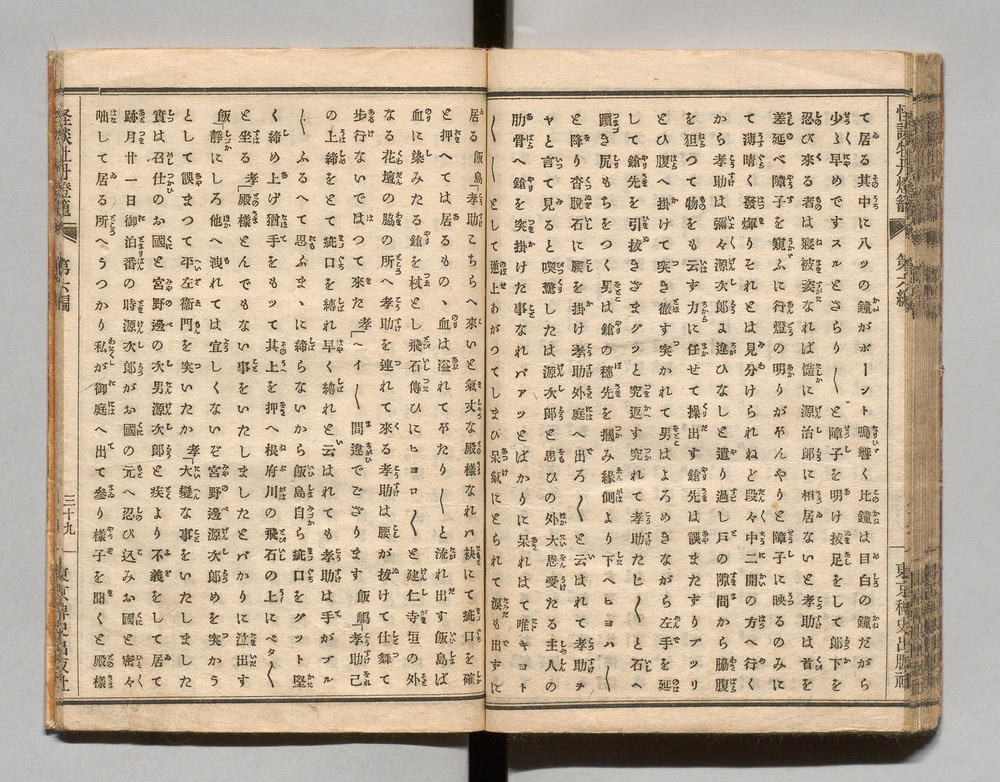 怪談牡丹燈籠 第六編 東京稗史出版社
て居る其中に八ツの鐘がボーント鳴響く此鐘は目白の鐘だから
少し早めですスルとさらり〳〵と障子を明け抜足をして郎下を
忍び來る者は寢衣姿なれば慥に源治郎に相居ないと孝助は首を
差延べ障子を窺ふに行燈の明りがボんやりと障子に映るのみに
て薄暗く發輝りそれとは見分けられねど段々中二開の方へ行く
から孝助は彌々源次郎に違ひなしと遣り過し戸の隙間から脇腹
を狙つて物をも云す力に任せて操出す鎗先は誤またすりプツリ
とひ腹へ掛けて突き徹す突かれて男はよろめきながら左手を延
して鎗先を引抜きさまグッと突返す突れて孝助たヒ〳〵と石へ
躓き尻もちをつく男は鎗の穗先を掴み緣側より下へヒヨハ〳〵
と降り沓脱石に腰を掛け孝助外庭へ出ろ〳〵と云はれて孝助チ
ヤと言て見ると喫驚したは源次郎と思ひの外大恩受たる主人の
肋骨へ鎗を突掛けた事なれバアッとばかりに呆れはて唯キヨト
〳〵〳〵として逆上あがつてしまひ呆氣にとられて淚も出すに
居る 飯島「孝助こちらへ來いと氣丈な殿様なれバ袂にて疵口を確
と押へては居るものヽ血は溢れて𛂦たり〳〵と流れ出す飯島は
血に染みたる鎗を杖とし飛石傳ひにヒヨロ〳〵と建仁寺垣の外
なる花壇の脇の所へ孝助を連れて來る孝助は腰が抜けて仕舞て
歩行ないではつて來た 孝「ヘイ〳〵間違でござります 飯嶋「孝助己
の上締をとつて疵口を縛れ早く縛れと云はれても孝助は手がブル
〳〵ふるへて思ふまヽに締らないから飯島自ら疵口をグット堅
く締め上げ猶手をもッて其上を押へ根府川の飛石の上にペタ〳〵
と坐る 孝「殿様とんでもない事をいたしましたとバかりに泣出す
飯「靜にしろ他へ洩れては宜しくないぞ宮野邊源次郎めを突かう
として誤まつて平左衞門を突いたか 孝「大變な事をいたしました
實は召仕のお國と宮野邊の次男源次郎と疾より不義をして居て
跡月廿一日御泊番の時源次郎がお國の元へ忍び込みお國と密々
咄して居る所へうつかり私が御庭へ出て參り樣子を聞くと殿樣
怪談牡丹燈籠 第六編 三十九 東京稗史出版社